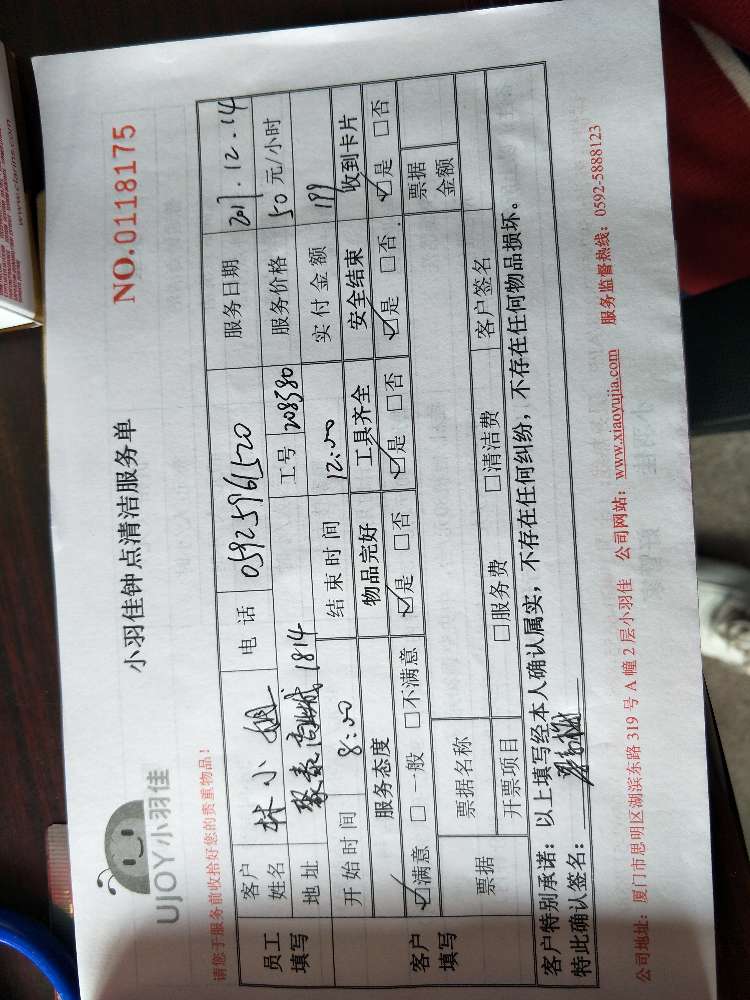 UJOY小羽佳
小羽佳钟点清洁服务单
NO.0118175
请您于服务前收拾好您的贵重物品！
员工填写
客户姓名 林小姐 电话 05925961520 服务日期 2017.12.14
地址 聚泰商业城1814 工号 208580 服务价格 50元/小时
开始时间 8:00 结束时间 12:00 实付金额 199
客户填写
服务态度 物品完好 工具齐全 安全结束 收到卡片
☑满意 □一般 □不满意 ☑是 □否 ☑是 □否 ☑是 □否 ☑是 □否
票据 票据名称 票据金额
开票项目 □服务费 □清洁费 客户签名
客户特别承诺：以上填写经本人确认属实，不存在任何纠纷，不存在任何物品损坏。
特此确认签名：
公司地址：厦门市思明区湖滨东路319号A幢2层小羽佳 公司网站：www.xiaoyujia.com 服务监督热线：0592-5888123